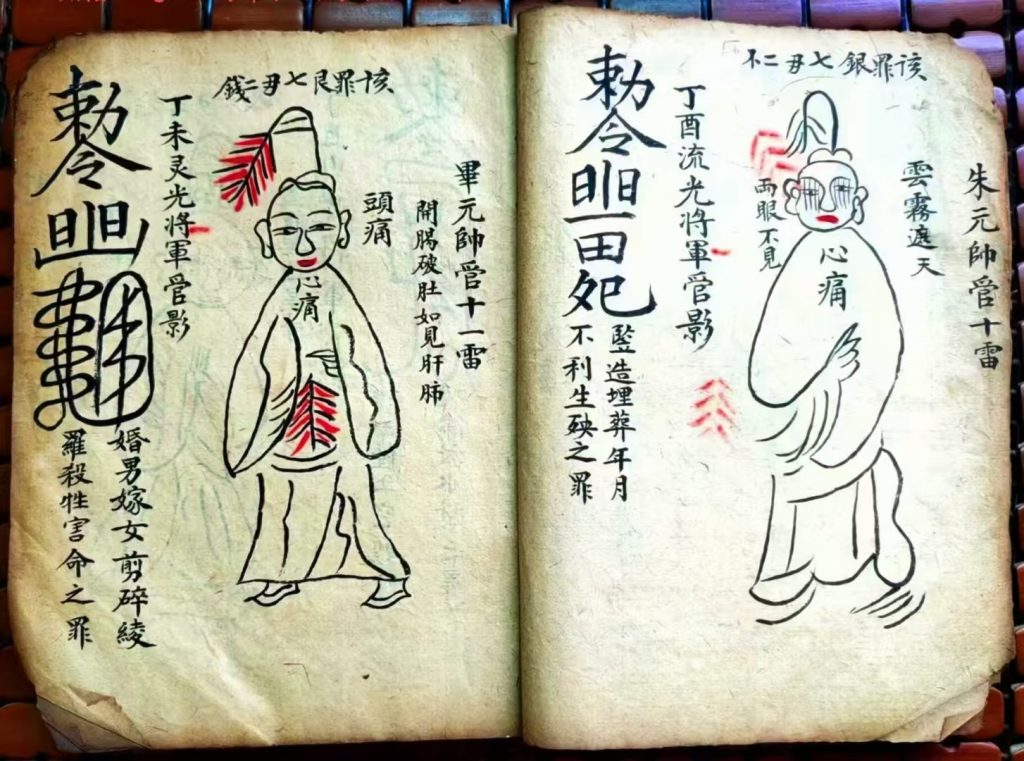 该罪銀七丑二不
朱元帥管十雷
雲霧遮天
心痛
両眼不見
丁酉流光將軍管影
勅令
竪造埋葬年月
不利生殃之罪
该罪艮七丑二錢
畢元帥管十一雷
開腸破肚如見肝肺
頭痛
心痛
丁未灵光將軍管影
勅令
婚男嫁女剪碎綾
羅殺牲害命之罪